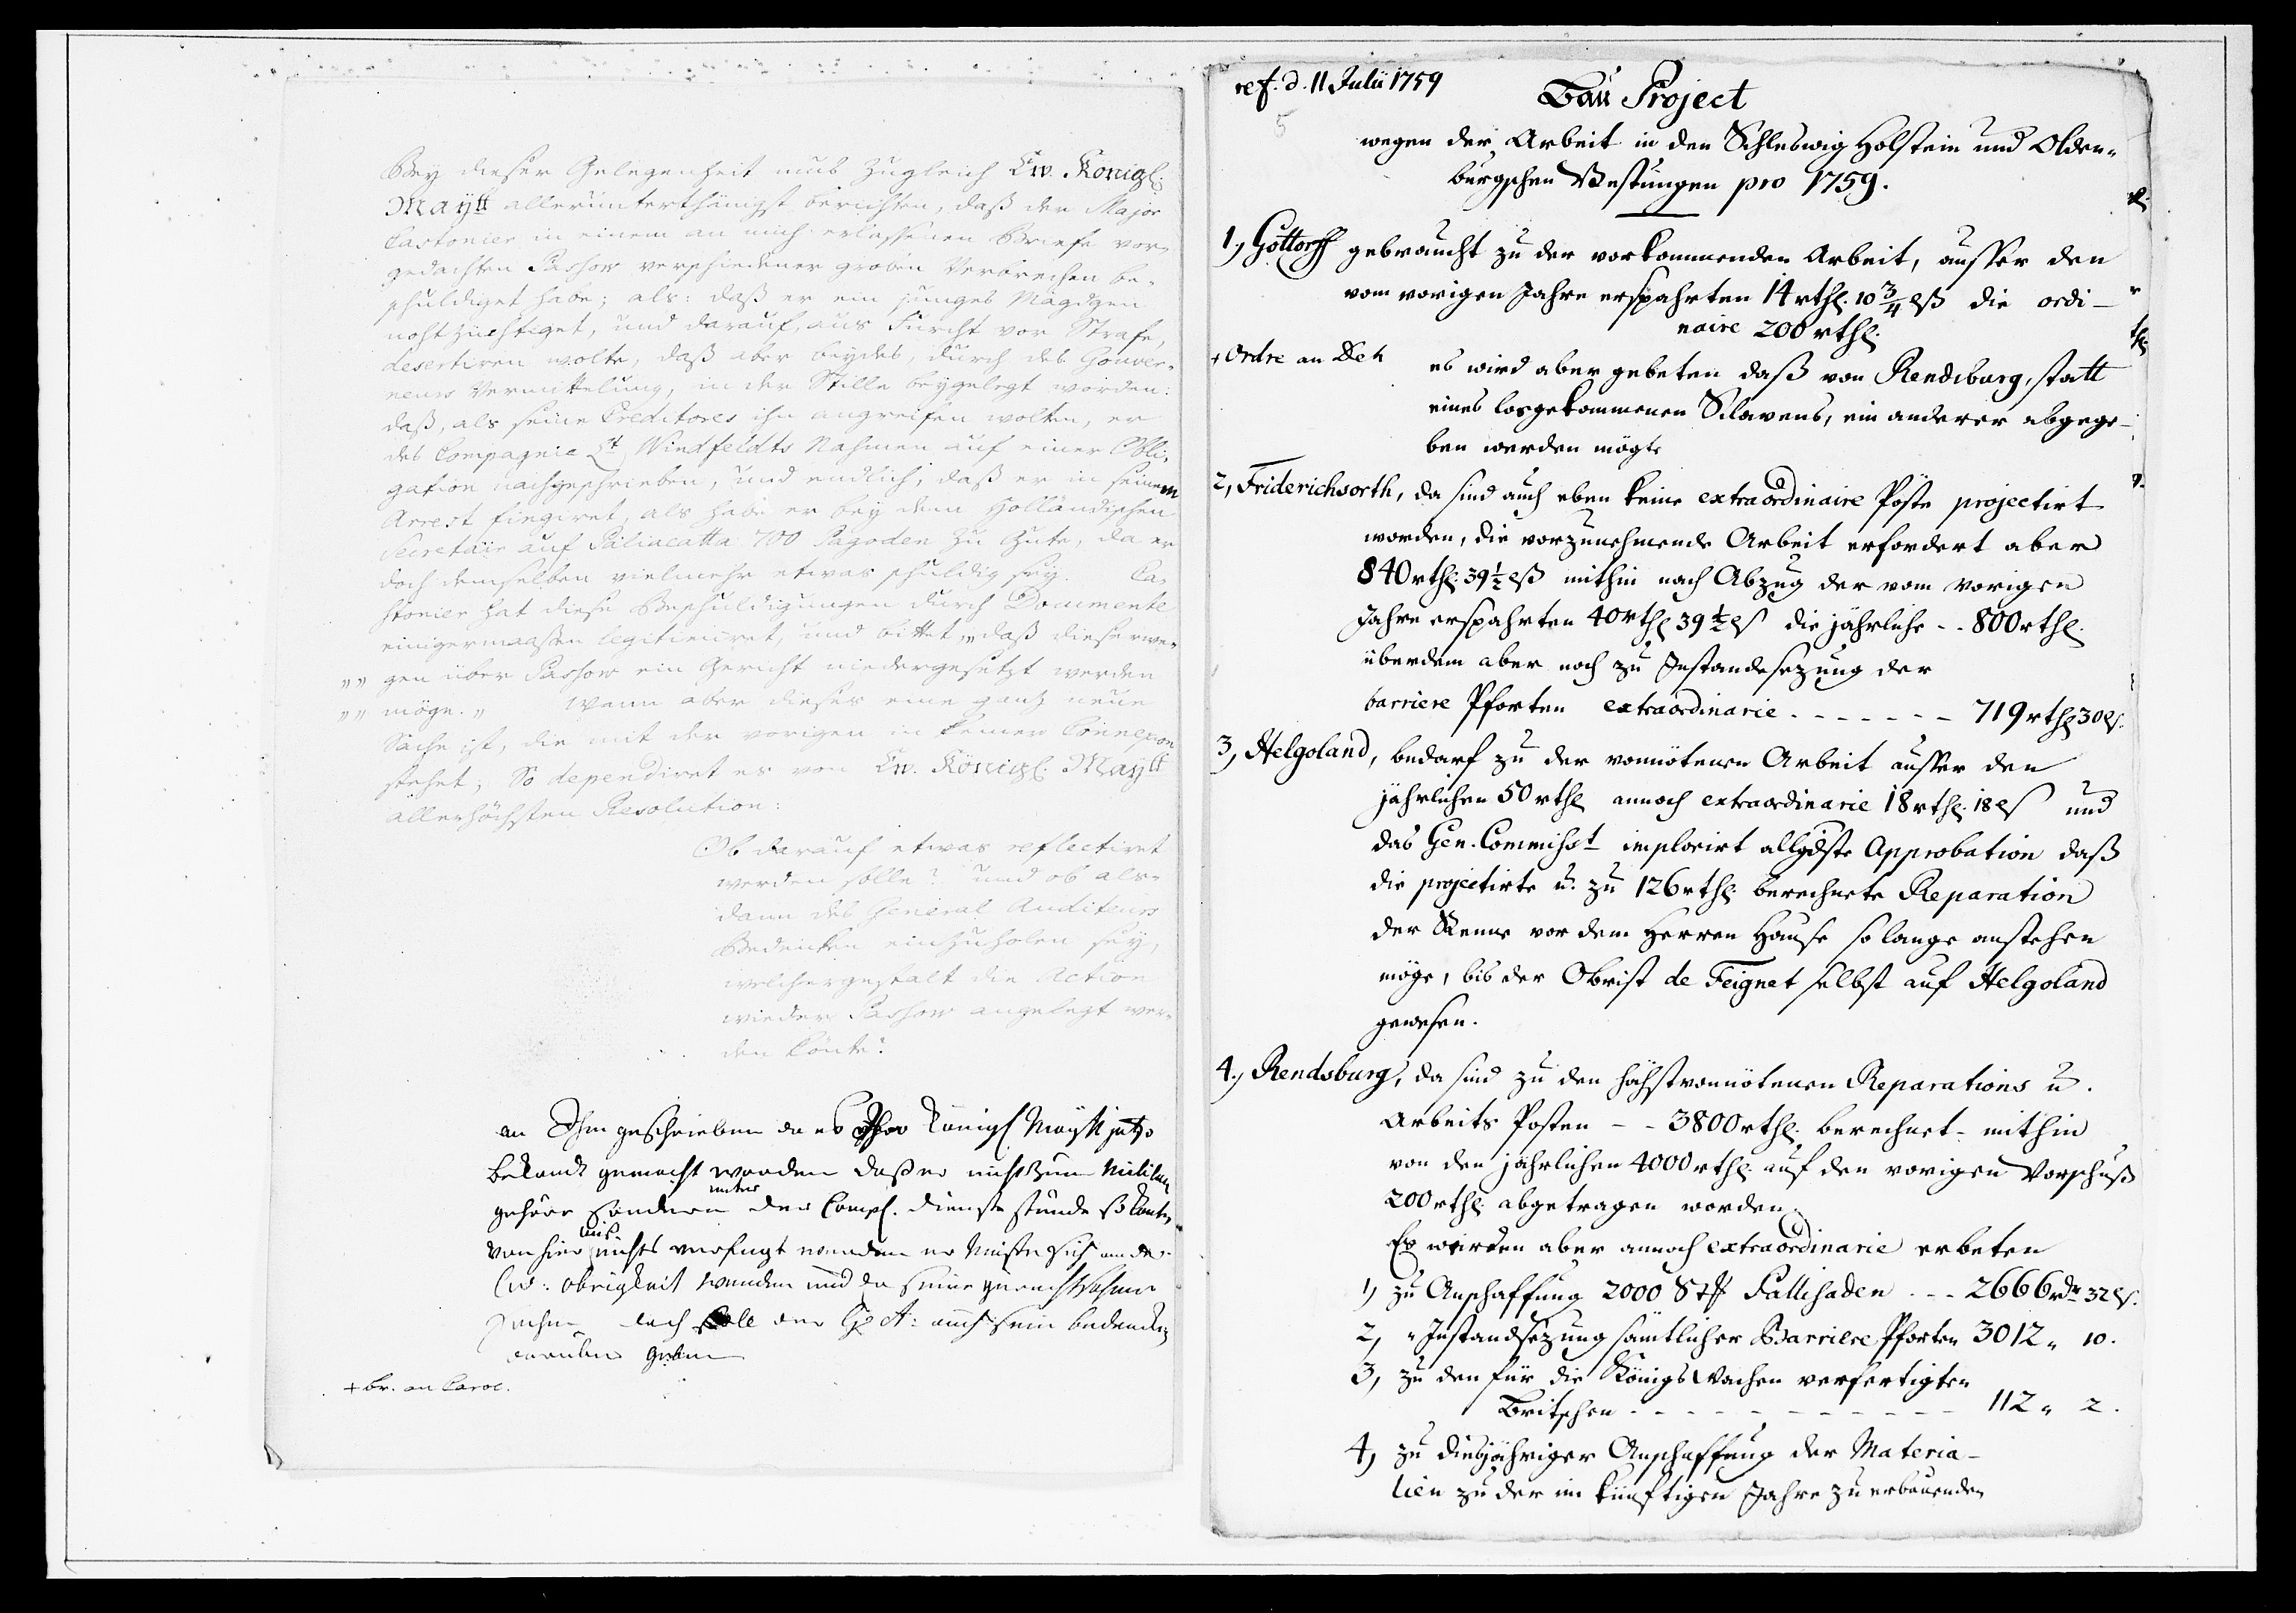 Bey dieser Gelegenheit mus zugleich Ew. Königl.
Maytt allerunterthänigst berichten, daß der Major
Castonier in einem an mich erlassenen Briefe vor-
gedachten Passow verschiedener groben Verbrechen be-
schuldiget habe; als: daß er ein junges Mägdgen
nohtzüchtiget, und darauf, aus Furcht vor Strafe,
desertiren wolte, daß aber beydes, durch des Gouver-
neurs Vermittelung, in der Stille beygelegt worden:
daß, als seine Creditores ihn angreifen wolten, er
des Compagnie Lt Windfeldts Nahmen auf einer Obli-
gation nachgeschrieben, und endlich, daß er in seinem
Arrest fingiret, als habe er bey dem Holländischen
Secretair auf Paliacatta 700 Pagoden zu Gute, da er
doch demselben vielmehr etwas schuldig sey. Ca-
stonier hat diese Beschuldigungen durch Documente
einigermaassen legitimiret, und bittet „daß dieserwe-
„„ gen über Passow ein Gericht niedergesetzt werden
„„ möge.„ Wenn aber dieses eine ganz neue
Sache ist, die mit der vorigen in keiner Connexion
stehet; So dependiret es von Ew. Königl. Maytt
allerhöchsten Resolution:
Ob darauf etwas reflectiret
werden solle? und ob als-
dann des General Auditeurs
Bedencken einzuholen sey,
welchergestalt die Action
wieder Passow angelegt wer-
den könte?
an Ihm geschrieben da es Ihro Königl Maytt jetzo
bekandt gemacht worden daß er nicht zum Militair
gehöre sondern unter der Comp. Dienste stünde so könte
von hier aus nichts verfügt werden er müste sich an de
Civ: obrigkeit wenden und da seine
doch soll der G: A: auch sein bedencken
darüber geben
+ br. an Caroc.
ref. d. 11 Julii 1759
5
Bau Project
wegen der Arbeit in den Schleswig Holstein und Olden-
burgschen Vestungen pro 1759.
1, Gottorff gebraucht zu der vorkommenden Arbeit, ausser den
vom vorigen Jahre erspahrten 14 rthl. 10 3/4 lß die ordi-
naire 200 rthl.
+ Ordre an Deh
es wird aber gebeten daß von Rendsburg, statt
eines losgekommenen Sclavens, ein anderer abgege-
ben werden mögte
2, Friderichsorth, da sind auch eben keine extraordinaire Poste projectirt
worden, die vorzunehmende Arbeit erfordert aber
840 rthl: 39 1/2 lß mithin nach Abzug der vom vorigen
Jahre erspahrten 40 rthl 39 1/2 lß die jährliche - - 800 rthl.
überdem aber noch zu Instandesezung der
barriere Pforten extraordinarie - - - - - - - 719 rthl 30 lß.
3, Helgoland, bedarf zu der vonnötenen Arbeit ausser den
jährlichen 50 rthl annoch extraordinarie 18 rthl. 18 lß und
das Gen. Commisst implorirt allgdste Approbation daß
die projectirte u. zu 126 rthl. berechnete Reparation
der Renne vor dem Herren Hause so lange anstehen
möge, bis der Obrist de Peignet selbst auf Helgoland
gewesen.
4, Rendsburg, da sind zu den höchstvonnötenen Reparations u.
Arbeits Posten - - 3800 rthl. berechnet - mithin
von den jährlichen 4000 rthl. auf den vorigen Vorschuß
200 rthl. abgetragen worden.
Es werden aber annoch extraordinarie erbeten
1) zu Anschaffung 2000 Stk Pallisaden - - - 2666 rdr 32 lß.
2, „ Instandsezung sämtlicher Barriere Pforten 3012 „ 10.
3, zu den für die Königs Wachen verfertigten
Britschen - - - - - - - - - - - 112 „ 2.
4, zu diesjähriger Anschaffung der Materia-
lien zu der im künftigen Jahre zu erbauenden